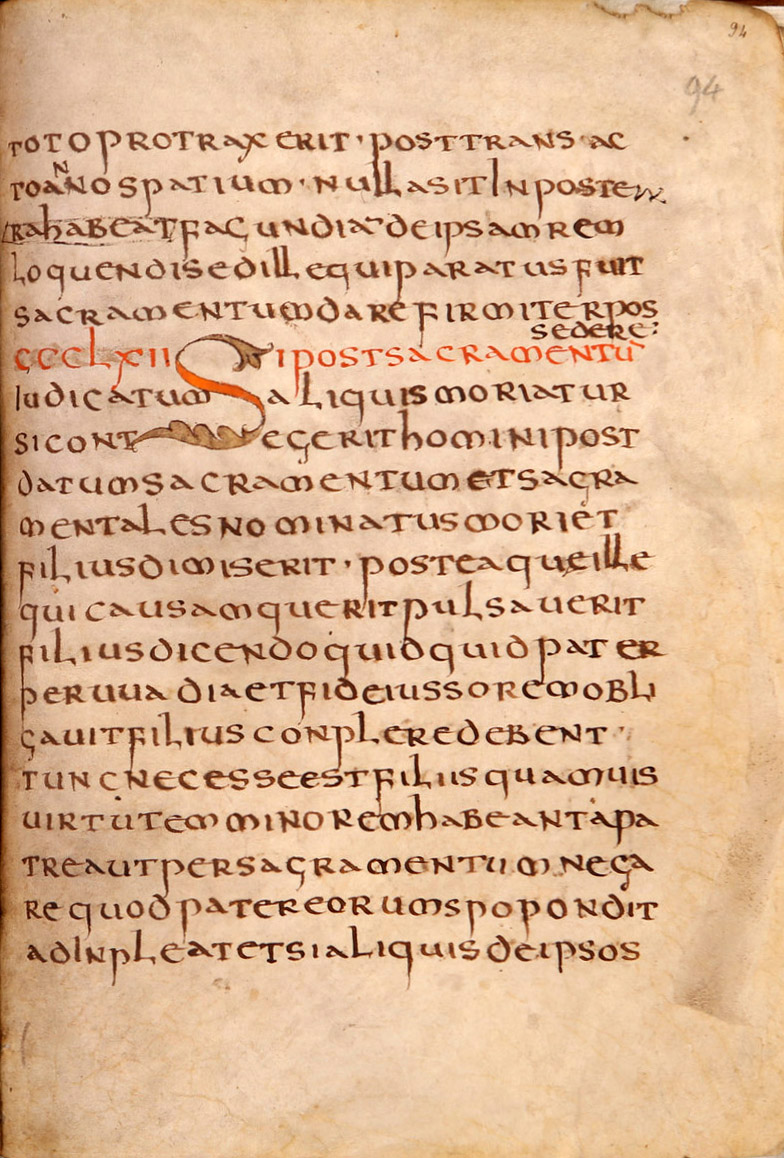 94
94
TOTO PROTRAXERIT · POST TRANSAC
TOANNO SPATIUM · NULLA SIT IN POSTER
RA HABEAT FACUNDIA DE IPSAM REM
LOQUENDI SED ILLE QUI PARATUS FUIT
SACRAMENTUM DARE FIRMITER POS
SEDERE:
CCCLXII SI POST SACRAMENTŪ
IUDICATUM ALIQUIS MORIATUR
SI CONTEGERIT HOMINI POST
DATUM SACRAMENTUM ET SACRA
MENTALES NOMINATUS MORI ET
FILIUS DIMISERIT · POSTEAQUE ILLE
QUI CAUSAM QUERIT PULSAUERIT
FILIUS DICENDO QUIDQUID PATER
PER UUADIA ET FIDEIUSSOREM OBLI
GAUIT FILIUS CONPLERE DEBENT ·
TUNC NECESSE EST FILIIS QUAMUIS
UIRTUTEM MINOREM HABEANT A PA
TRE AUT PER SAGRAMENTUM NEGA
RE QUOD PATER EORUM SPOPONDIT
ADINPLEAT ET SI ALIQUIS DE IPSOS